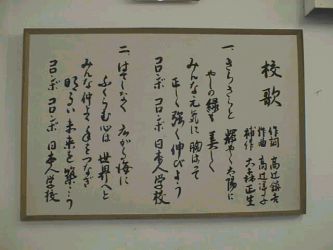 校歌
作詞 高辻鎮雄
作曲 高辻淳子
補作 大森正生
一、きらきらと 輝やく太陽に
やしの緑も 美しく
みんな元気に 胸はって
正しく強く伸びよう
コロンボ コロンボ 日本人学校
二、はてしなく 広がる海に
ふくらむ心は 世界へと
みんな仲よく手をつなぎ
明るい未来を 築こう
コロンボ コロンボ 日本人学校